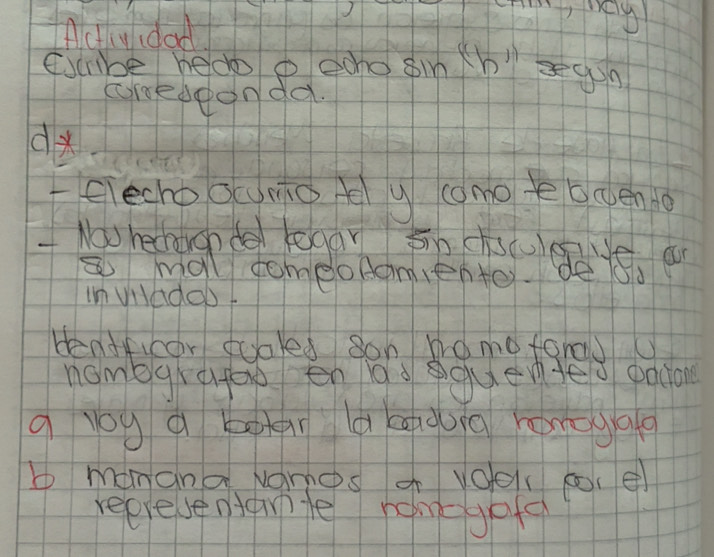 Actividad.
Escribe hecho o echo sin "h" segun
corresponda.
d*
- El echo ocurrio tal y como te lo cuento
- Nos hecharon del lugar sin disculparse por
mal comportamiento. de los
invitados.
Identificar cuales son homofonas y
homografas en las siguientes
a voy a botar la basura homografa
b manana vamos a votar por el
representante homografa